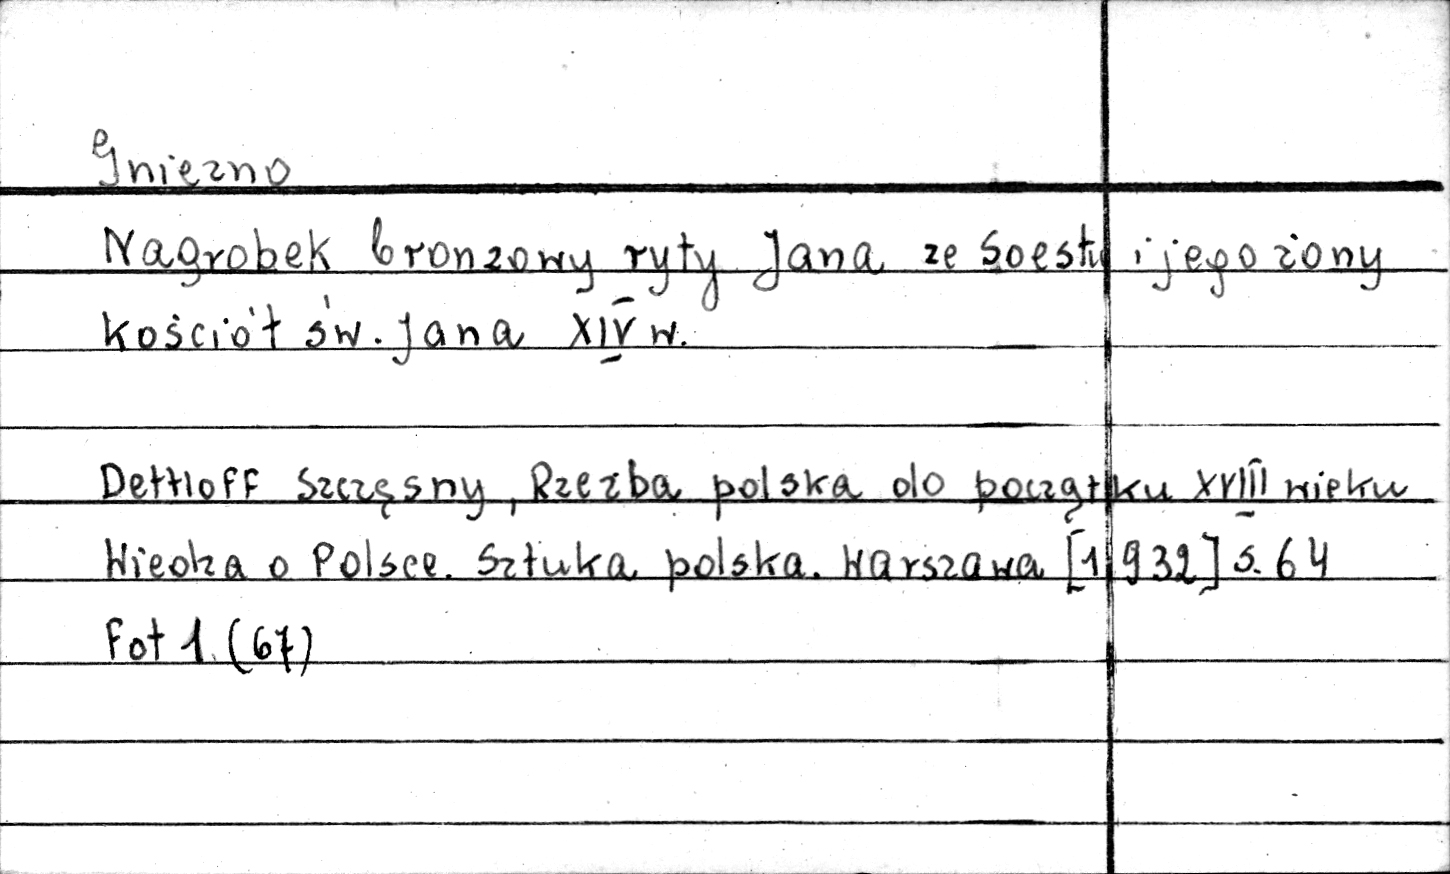 Gniezno
Nagrobek bronzowy ryty Jana ze Soestu i jego żony
kościół św. Jana XIV w.
Dettloff Szczęsny, Rzeźba polska do początku XVIII wieku
Wiedza o Polsce. Sztuka polska. Warszawa [1932] s. 64
Fot 1. (67)